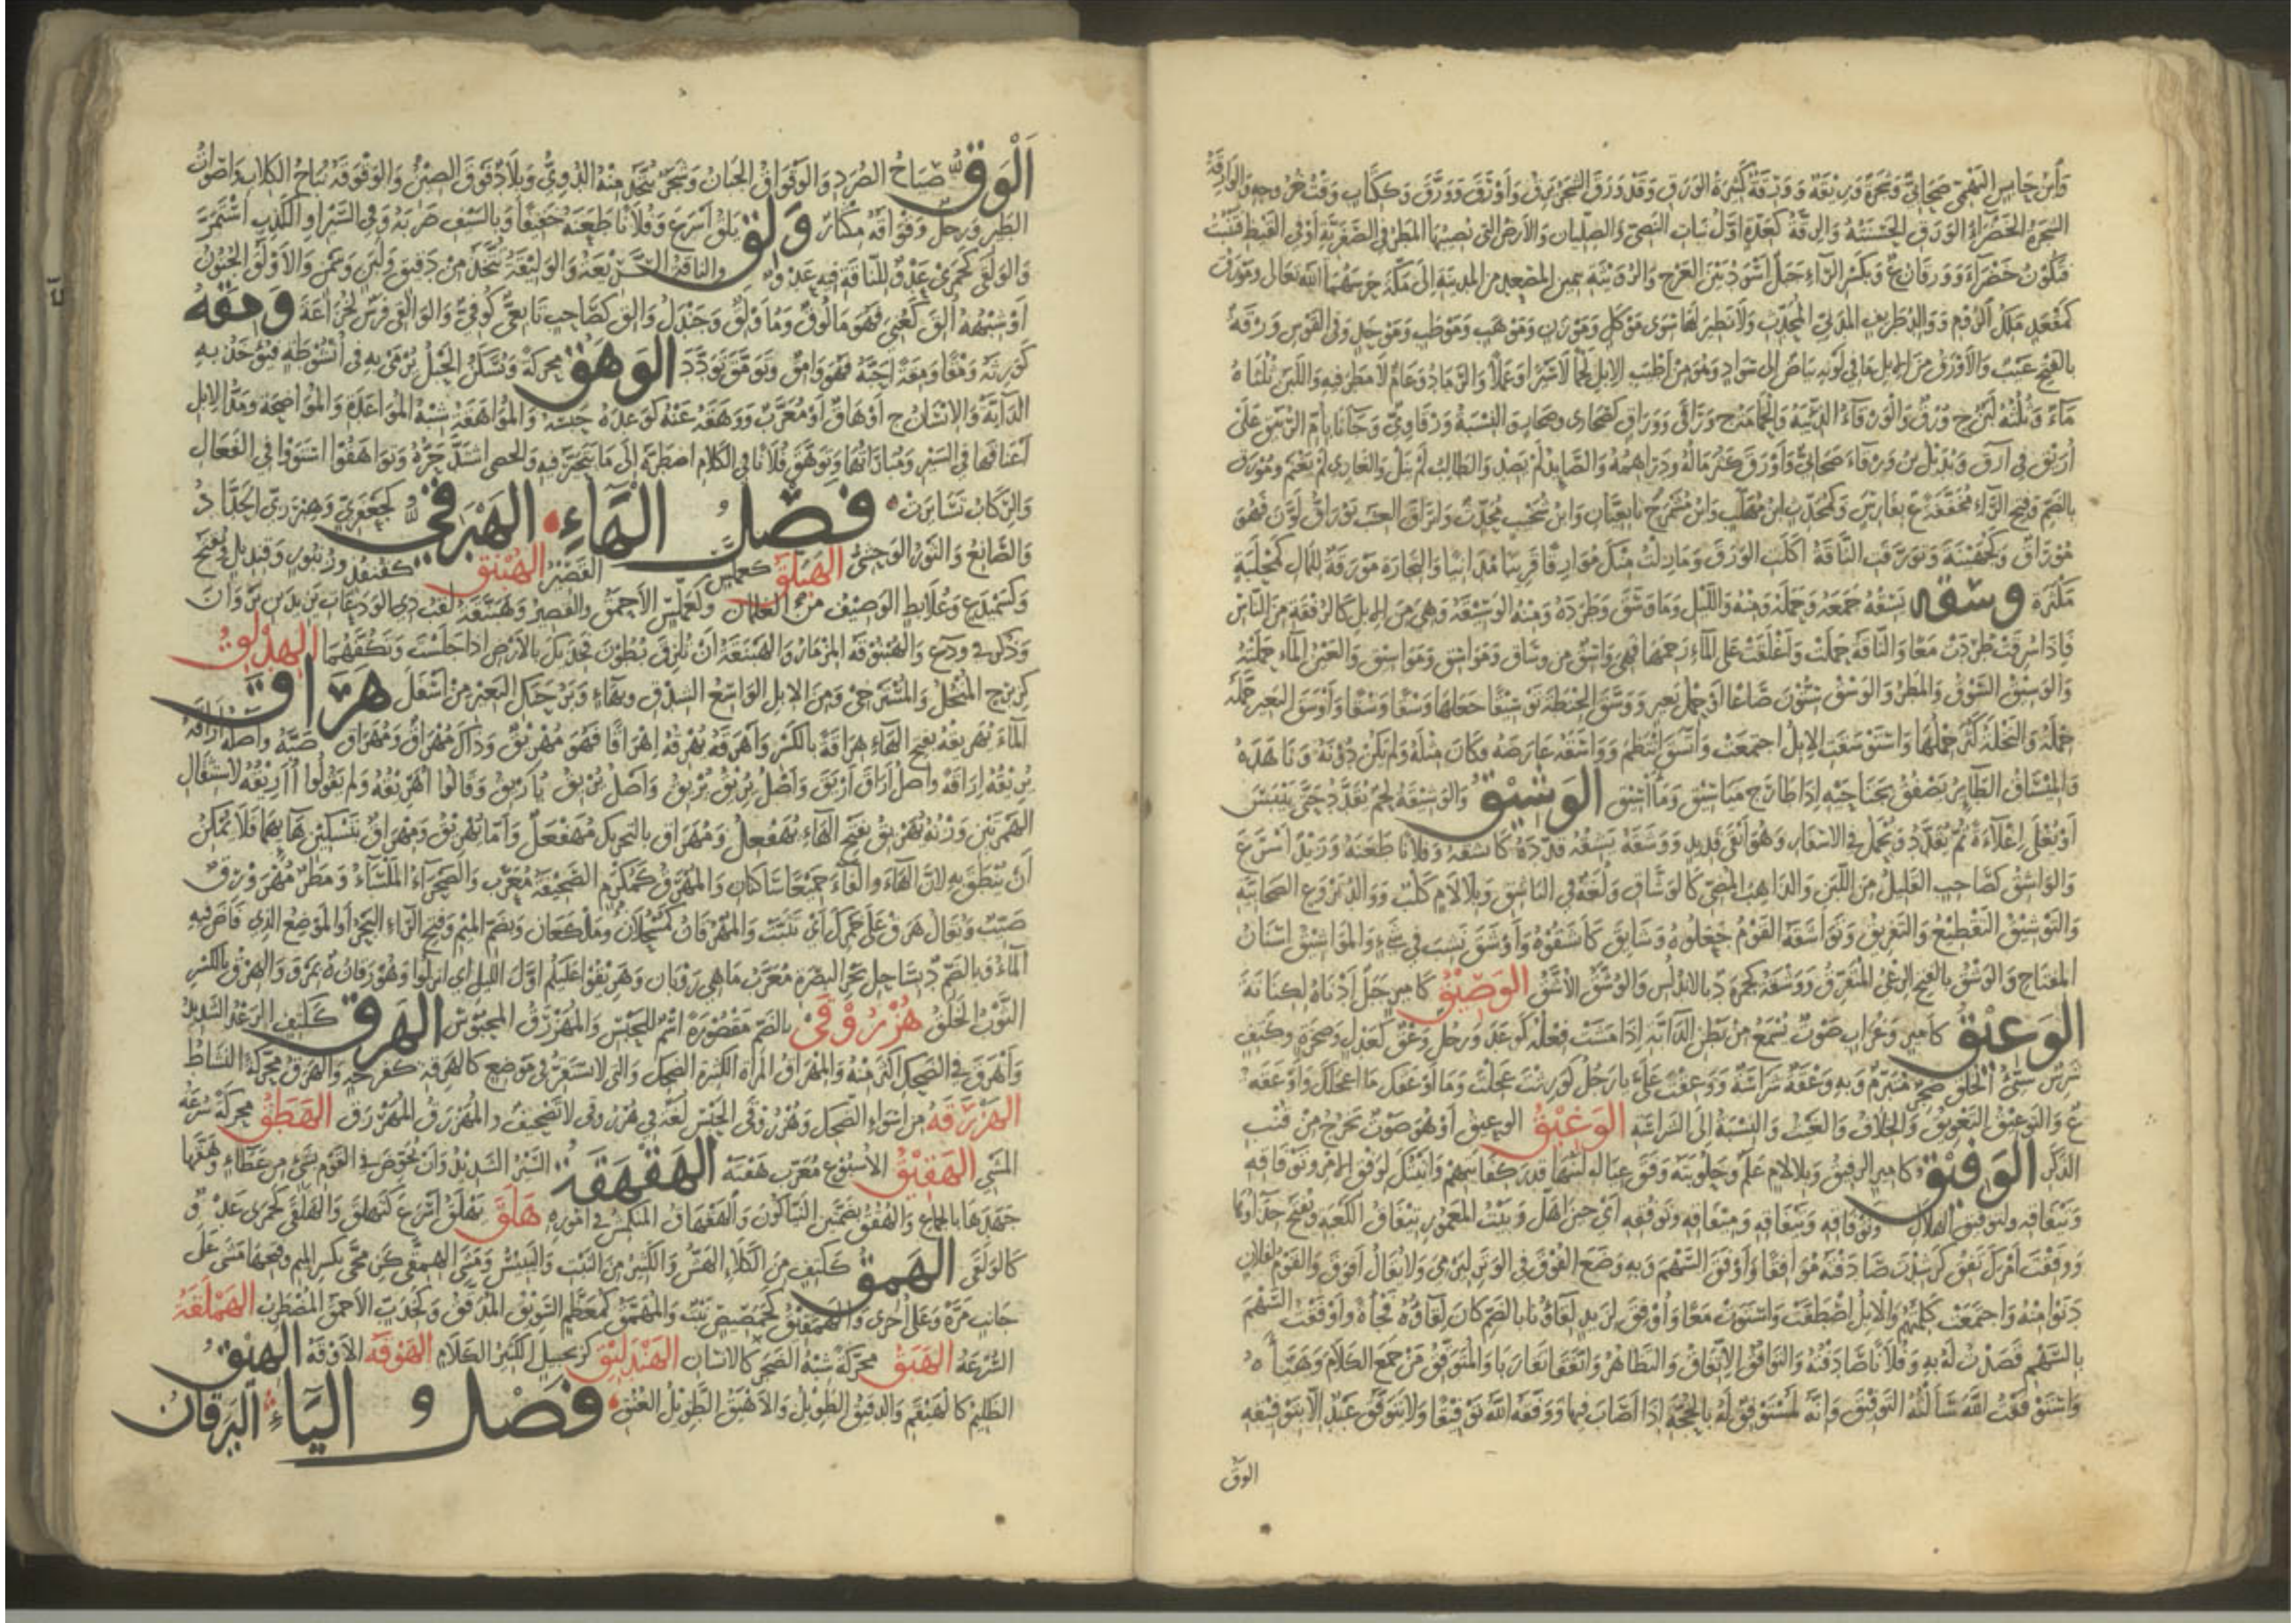 وابن حابس التميمي صحابي وشجرة وريقة وورقة كثيرة الورق وقد ورق الشجر يرق وأورق وورق وككتاب وقت خروجه والوارقة
الشجرة الخضراء الورق الحسنته والرقة كعدة أول نبات النصي والصليان والأرض التي يصيبها المطر في الصفرية أو في القيظ فتنبت
فتكون خضراء وورقان ع وبكسر الراء جبل أسود بين العرج والرويثة بيمين المصعد من المدينة إلى مكة حرسهما الله تعالى ومورق
كمقعد ملك الروم ووالد طريف المدني المحدث ولا نظير لها سوى موكل وموزن وموهب وموظب وموحل وفي القوس ورقة
بالفتح عيب والأورق من الإبل ما في لونه بياض إلى سواد وهو من أطيب الإبل لحما لا سيرا وعملا والرماد وعام لا مطر فيه واللبن ثلثاه
ماء وثلثه لبن ج ورق والورقاء الذئبة والحمامة ج وراقى ووراق كصحارى وصحاب والنسبة ورقاوي وجانا بأم الربيق على
أريق في أرق وبديل بن ورقاء صحابي وأورق كثر ماله ودراهمه والصايد لم يصد والطالب لم ينل والغازي لم يغنم ومورق
بالضم وفتح الراء مخففة ع بفارس وكمحدث ابن مهلب وابن مشمرج تابعيان وابن سخيت محدث وايراق العنب يوراق لون فهو
موراق وكجهينة ع وتورقت الناقة أكلت الورق وما زلت منك موارقا قريبا مدانيا والتجارة مورقة للمال كمجلبة
مكثرة وسقه يسقه جمعه وحمله ومنه والليل وما وسق وطرده ومنه الوسيقة وهي من الإبل كالرفقة من الناس
فإذا سرقت طردت معا والناقة حملت وأغلقت على الماء رحمها فهي واسق من وساق ومواسق ومواسيق والعين الماء حملته
والوسيق السوق والمطر والوسق ستون صاعا أو حمل بعير ووسق الحنطة توسيقا جعلها وسقا وسقا وأوسق البعير حمله
حمله والنخلة كثر حملها واستوسقت الإبل اجتمعت واتسق انتظم وواسقه عارضه فكان مثله ولم يكن دونه وناهده
والميساق الطائر يصفق بجناحيه إذا طار ج مياسيق ومآسيق الوشيق والوشيقة لحم يقدد حتى ييبس
أو يغلى إغلاءة ثم يقدد ويحمل في الأسفار وهو أبقى قديد ووشقه يشقه قدده كاتشقه وفلانا طعنه وزيد أسرع
والواشق كصاحب القليل من اللبن والذاهب المضي كالوشاق ولغة في الباشق وبلا لام كلب ووالد بروع الصحابية
والتوشيق التقطيع والتفريق وتواشقه القوم جعلوه وشايق كاشتقوه وأوشق نشب في شيء والمواشيق أسنان
المفتاح والوشق بالفتح الرعي المتفرق ووشقة كحمزة د بالأندلس والوشق الأشق الوصيق كأمير جبل أدناه لكنانة
الوعيق كأمير وغراب صوت يسمع من بطن الدابة إذا مشت فعله كوعد ورجل وعق كعدل وصخرة وككتف
شرس سيئ الخلق ضجر متبرم وبه وعقة شراسة ووعقت علي يا رجل كورثت عجلت وما أوعقك ما أعجلك وأوعقه
ع والتوعيق التعويق والخلاف والعيث والنسبة إلى الشراسة الوغيق الوعيق أو هو صوت يخرج من قنب
الذكر الوفيق كأمير الرفيق وبلا لام علم وحلوبته وفق عياله لبنها قدر كفايتهم وأتيتك لوفق الأمر وتوفاقه
وتيفاقه ولتوفيق الهلال وتوفاقه وتيفاقه وميفاقه وتوفقه أي حين أهل وبيت المعمور تيفاق الكعبة ويفتح حذاؤها
ووفقت أمرك تفق كرشدت صادفته موافقا وأوفق السهم وبه وضع الفوق في الوتر ليرمي ولا يقال أفوق والقوم لفلان
دنوا منه واجتمعت كلمتهم والإبل اصطفت واستوت معا وأوفق لزيد لقاؤنا بالضم كان لقاؤه فجأة وأوفقت السهم
بالسهم قصدت له به وفلانا صادفته والتوافق الاتفاق والتظاهر واتفقا تقاربا والمتوفق من جمع الكلام وهيأه
واستوفقت الله سألته التوفيق وإنه لمستوفق له بالحجة إذا أصاب فيها ووفقه الله توفيقا ولا يتوفق عبد إلا بتوفيقه
الوق
الوق صياح الصرد والوقواق الجبان وشجر يتخذ منه الدوي وبلاد فوق الصين والوقوقة نباح الكلاب وأصوات
الطير ورجل وقواقة مكثار ولق يلق أسرع وفلانا طعنه خفيفا وبالسيف ضربه وفي السير أو الكذب استمر
والولقى كجمزى عدو للناقة فيه عدو والناقة السريعة والوليقة تتخذ من دقيق ولبن وسمن والأولق الجنون
أو شبهه ألق كعني فهو مألوق ومأولق وجندل والق كصاحب تابعي كوفي والوالقي فرس لخزاعة ومقه
كورثه ومقا ومقة أحبه فهو وامق وتومق تودد الوهق محركة ويسكن الحبل يرمى به في أنشوطة فيؤخذ به
الدابة والإنسان ج أوهاق أو معرب ووهقه عنه كوعده حبسه والمواهقة شبه المواعدة والمواضحة ومد الإبل
أعناقها في السير ومباراتها وتوهق فلانا في الكلام اضطره إلى ما يتحير فيه والحصى اشتد حره وتواهقوا استووا في الفعال
والركاب تسايرت فصل الهاء الهبرقي كجعفري وهبرزي الحداد
والصانع والثور الوحشي الهبلق كعملس القصير الهبنق كقنفذ وزنبور وقنديل ويفتح
وكسميدع وعلابط الوصيف من الغلمان وكعملس الأحمق والقصير وهبنقة لقب ذي الودعات يزيد بن ثروان
وذكر في ودع والهبنوقة المزمار والهبنقة أن تلزق بطون فخذيك بالأرض إذا جلست وتكفهما الهدلق
كزبرج المنخل والمسترخي ومن الإبل الواسع الشدق وبهاء وبر حنك البعير من أسفل هراق
الماء يهريقه بفتح الهاء هراقة بالكسر وأهرقه يهرقه إهراقا فهو مهريق وذاك مهراق ومهراق صبه وأصله أراقه
يريقه إراقة وأصل أراق أريق وأصل يريق يريق وأصل يريق يأريق وقالوا أهريقه ولم يقولوا أأريقه لاستثقال
الهمزتين وزنة يهريق بفتح الهاء يهفعل ومهراق بالتحريك مهفعل وأما يهريق ومهراق بتسكين هائهما فلا يمكن
أن ينطق به لأن الهاء والفاء جميعا ساكنان والمهرق كمكرم الصحيفة معرب والصحراء الملساء ومطر مهرورق
صيب ويقال هرق على خمرك أي تثبت والمهرقان كمسحلان وملكعان وبضم الميم وفتح الراء البحر أو الموضع الذي فاض فيه
الماء وبالضم د بساحل بحر البصرة معرب ماهي رويان وهريقوا عليكم أول الليل أي انزلوا وهو رقان د بمرو والهرق بالكسر
الثوب الخلق هزروقى بالضم مقصورة اسم للحبس والمهزرق المحبوس الهزق ككتف الرعد الشديد
وأهزق في الضحك أكثر منه والمهزاق المرأة الكثيرة الضحك والتي لا تستقر في موضع كالهزقة كفرحة والهزق محركة النشاط
الهزرقة من أسواء الضحك وهزروقى الحبس لغة في هرزوقى لا تصحيف والمهزرق المهرزق الهطق محركة سرعة
المشي الهقيق الأسبوع معرب هفته الهقهقة السير الشديد وأن تخوض في القوم بشيء من عطاء وهقها
جهدها بالجماع والهقق بضمتين النياكون والهقهاق المنكمش في أموره هلق يهلق أسرع كتهلق والهلقى كجمزى عدو
كالولقى الهمق ككتف من الكلأ الهش والكثير من النبت واليبيس ومشى الهمقى كزمجى بكسر الميم وفتحها مشى على
جانب مرة وعلى أخرى والهمقيق كحمصيص نبت والمهمق كمعظم السويق المدقق وكخدب الأحمق المضطرب الهملقة
السرعة الهنق محركة شبه الضجر كالإنسان الهندليق كزنجبيل الكثير الكلام الهوقة الأوقة الهيق
الظليم كالهيقم والدقيق الطويل والأهيق الطويل العنق فصل الياء اليرقان